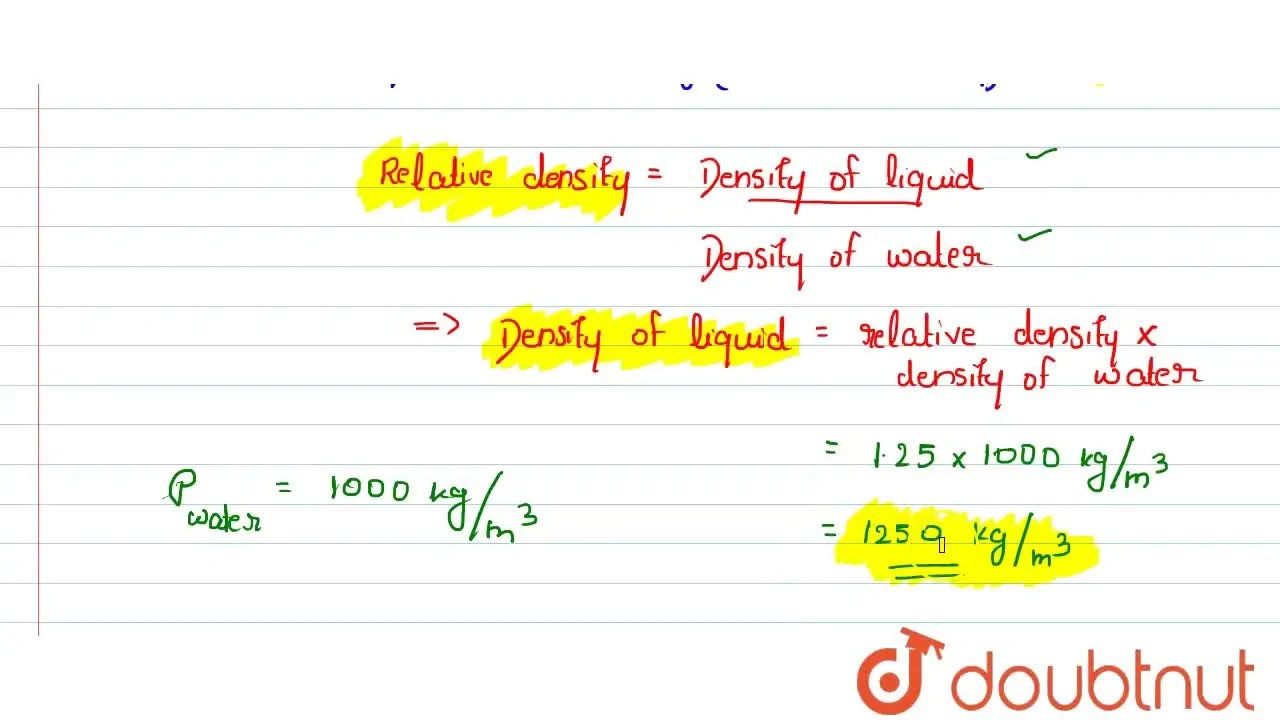 Relative density = Density of liquid
Density of water
=> Density of liquid = relative density x
density of water
= 1.25 x 1000 kg/m³
ρwater = 1000 kg/m³
= 1250 kg/m³
doubtnut